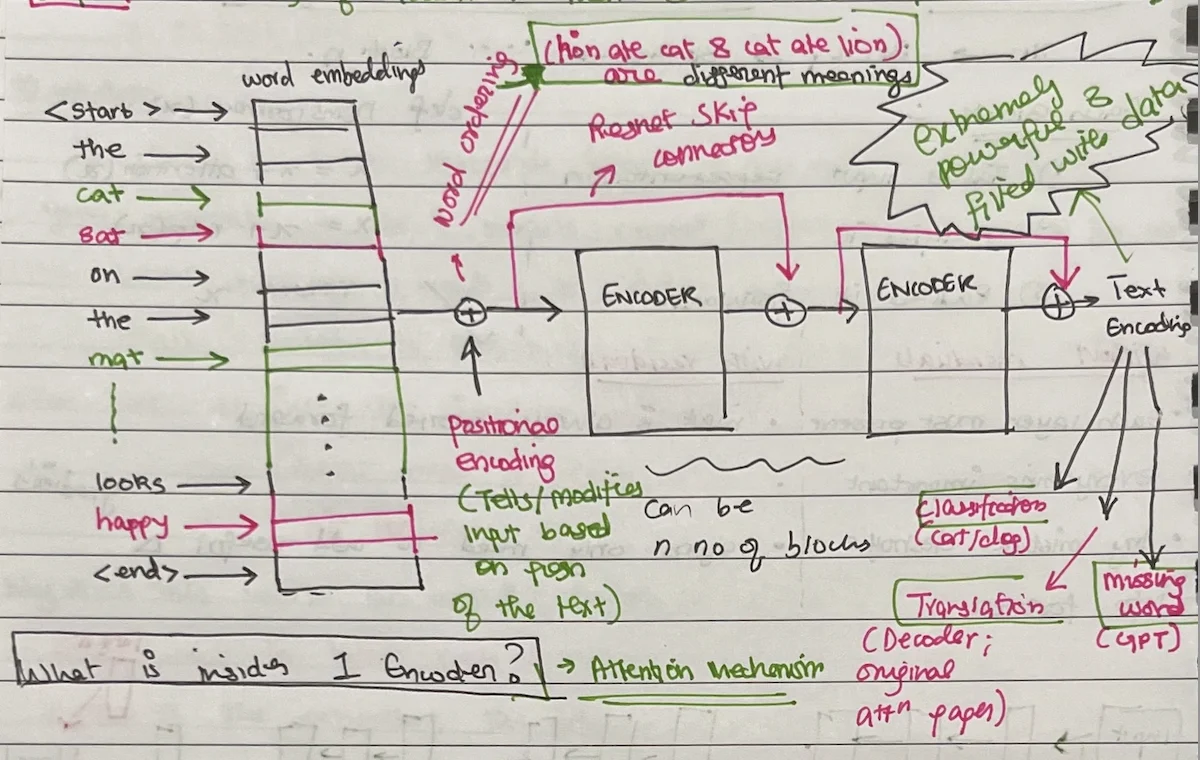 (lion ate cat & cat ate lion)
are different meanings
word embeddings
word ordering
Resnet Skip
connectors
extremely
powerful &
filled with data
<start>
the
cat
sat
on
the
mat
looks
happy
<end>
ENCODER
ENCODER
Text
Encoding
positional
encoding
(Tells/modifies
input based
on
of the text)
can be
n no of blocks
Classification
(cat/dog)
Translation
(Decoder;
original
attn paper)
missing
word
(GPT)
What is insides 1 Encoder?
→ Attention mechanism